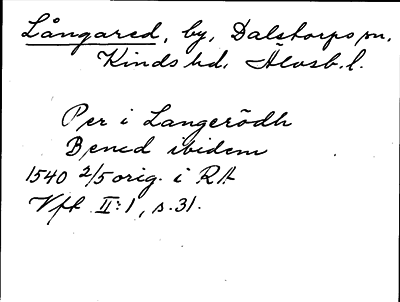 Långared, by, Dalstorps sn,
Kinds hd, Älvsb. l.
Per i Langerödh
Bened ibidem
1540 2/5 orig. i RA
Vft II:1, s. 31.